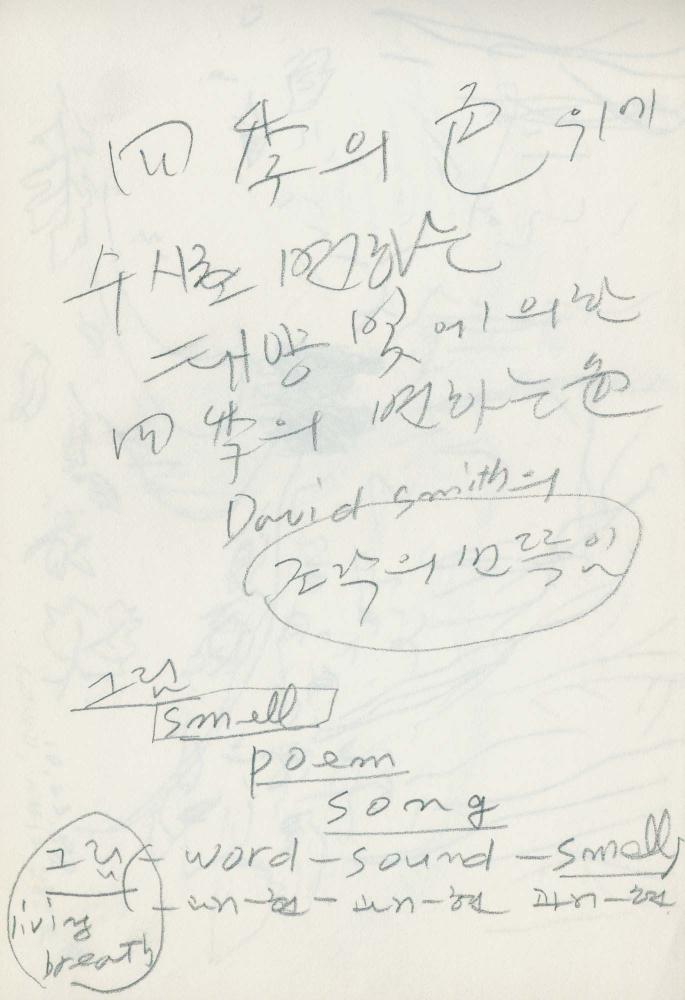 四季의 色 위에
수시로 변하는
태양 빛에 의한
四季의 변하는 色
David Smith의
조각의 번뜩임
그림
smell
poem
song
그림 - word - sound - smell
living
breath